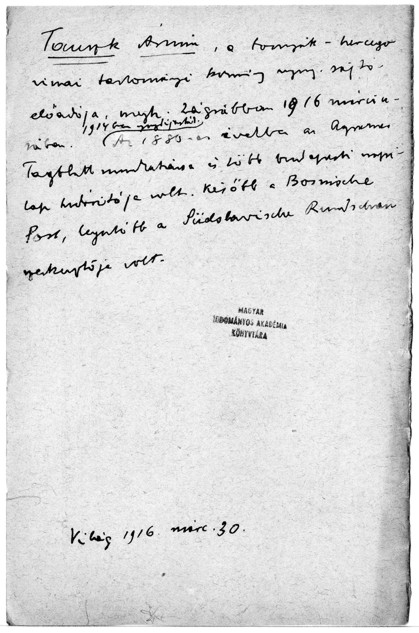 Tausyk Ármin, a bosnyák-hercego
vinai tartományi kormány nyug. sajtó-
előadója, megh. Zágrábban 1916 március-
1914-ben nyugdíjazták.
sában. (Az 1880-as években az Agramer
Tagblatt munkatársa és több budapesti napi-
lap tudósítója volt. Később a Bosnische
Post, legutóbb a Südslavische Rundschau
szerkesztője volt.
MAGYAR
TUDOMÁNYOS AKADÉMIA
KÖNYVTÁRA
Világ 1916 márc. 30.